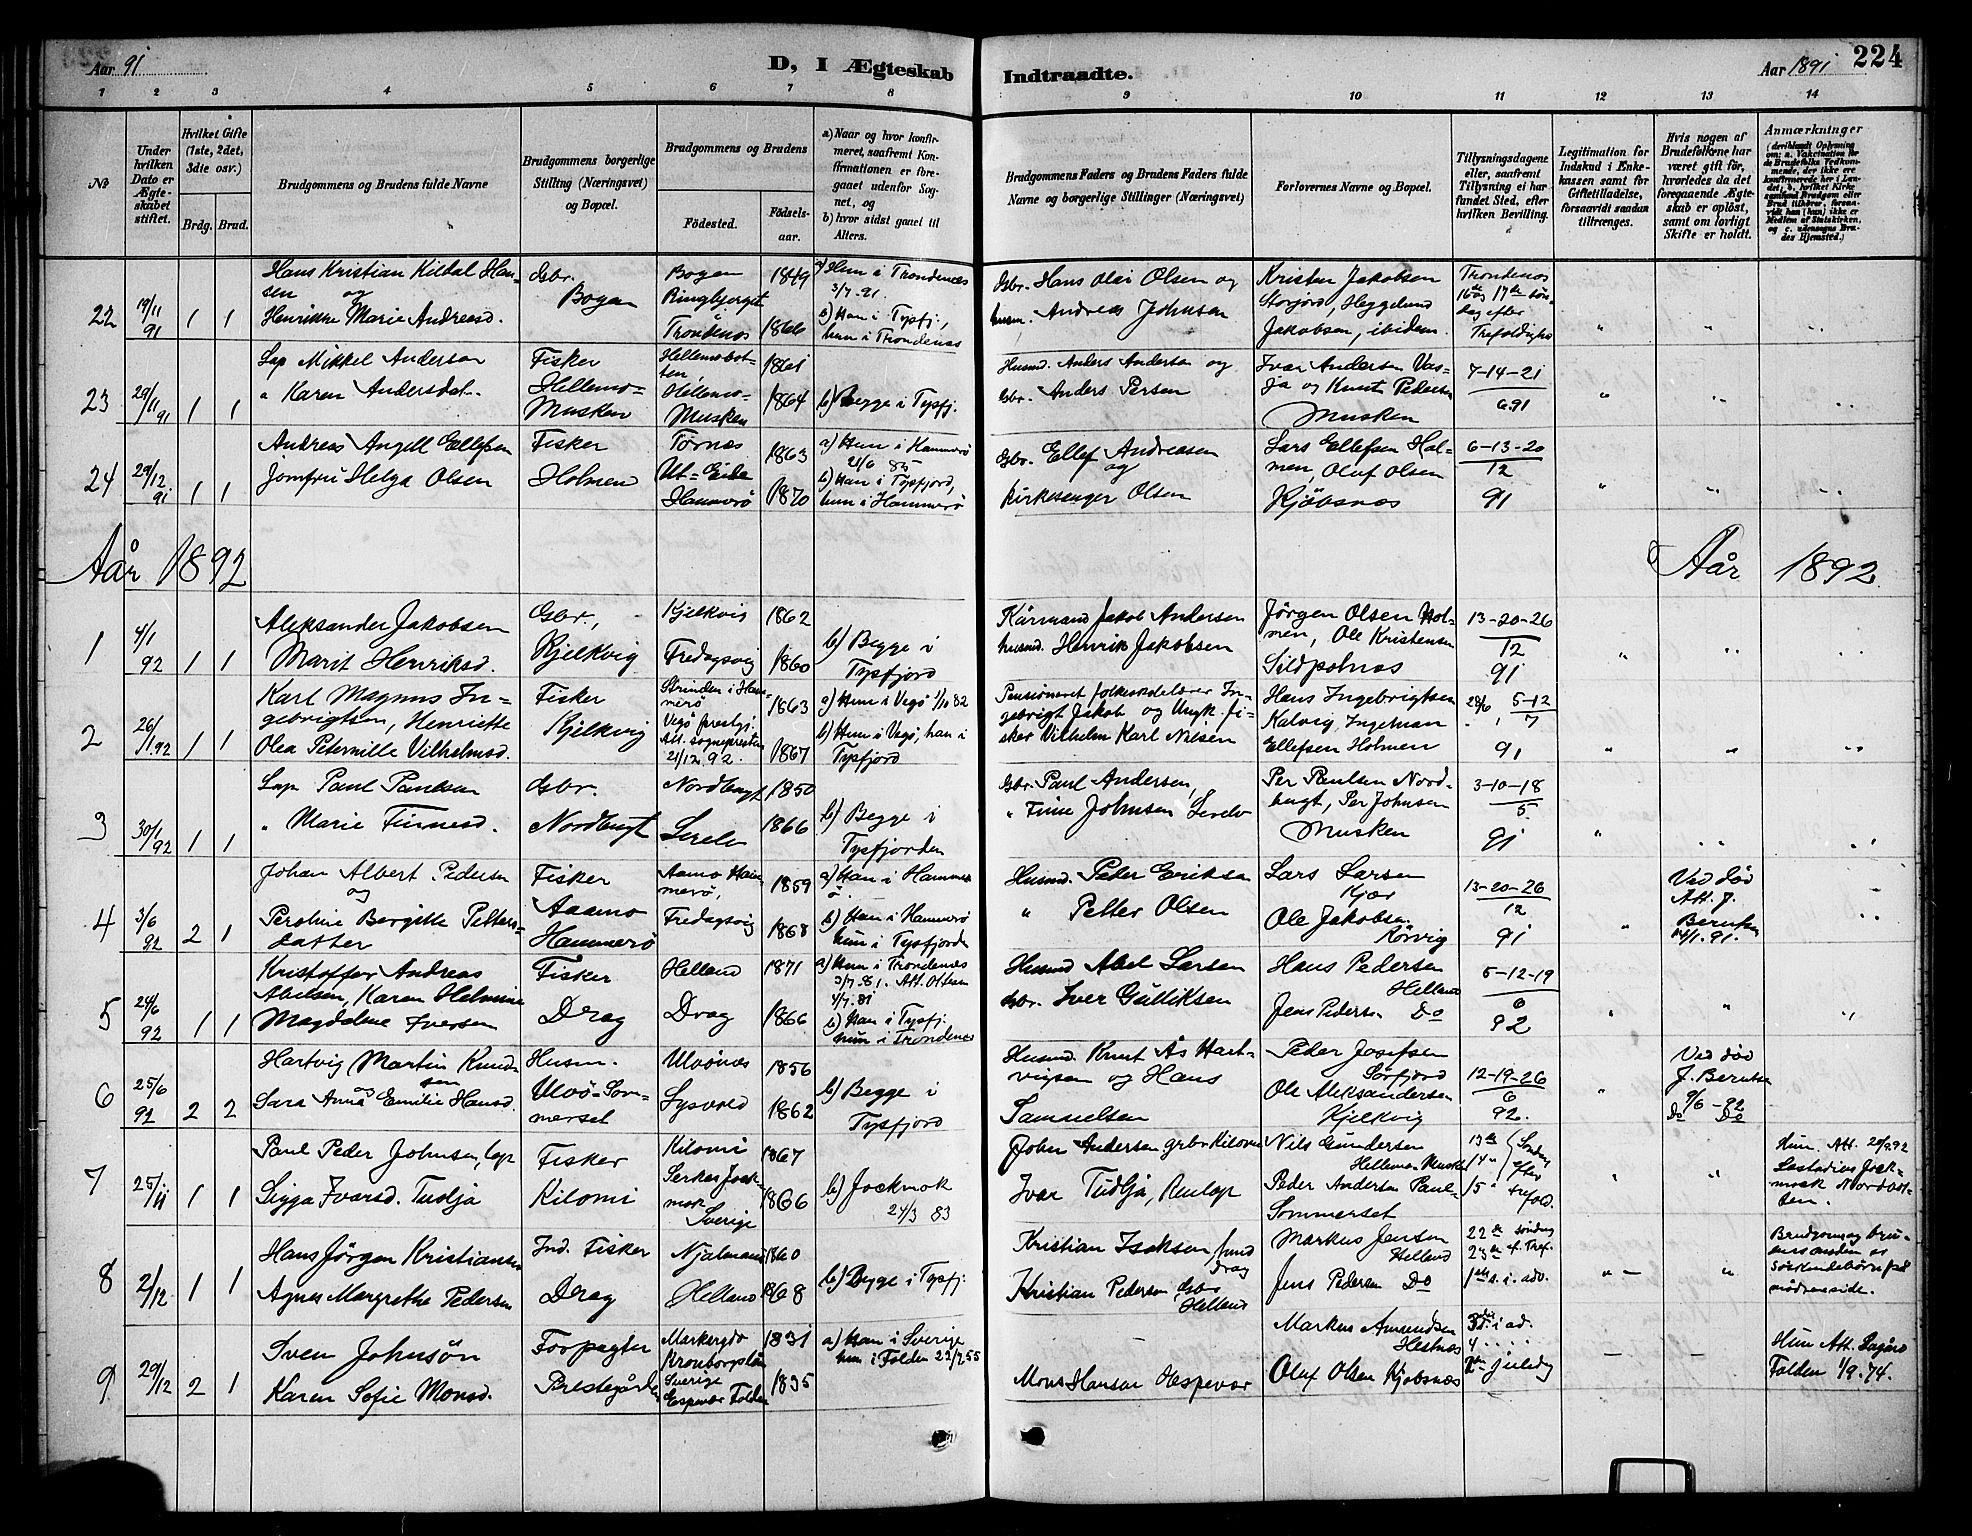 Aar 91
D, I Ægteskab
Indtraadte.
Aar 1891
224
1 2 3 4 5 6 7 8 9 10 11 12 13 14
No
Under hvilken Dato er Ægteskabet stiftet.
Hvilket Gifte (1ste, 2det, 3die osv.)
Brdg. Brud.
Brudgommens og Brudens fulde Navne
Brudgommens borgerlige Stilling (Næringsvei) og Bopæl.
Brudgommens og Brudens
Fødested.
Fødselsaar.
a) Naar og hvor konfirmeret, saafremt Konfirmationen er foregaaet udenfor Sognet, og
b) hvor sidst ganet til Alters.
Brudgommens Faders og Brudens Faders fulde Navne og borgerlige Stillinger (Næringsvei)
Forlovernes Navne og Bopæl.
Tillysningsdagene eller, saafremt Tillysning ei har fundet Sted, efter hvilken Bevilling.
Legitimation for Indskud i Enkekassen samt for Giftetilladelse, forsaavidt saadan tiltrænges.
Hvis nogen af Brudefolkene har været gift før, hvorledes da det foregaaende Ægteskab er opløst, samt om lovligt Skifte er holdt.
Anmærkninger (deriblandt Oplysning om: a. Vaccination for de Brudefolks Vedkommende, der ikke ere konfirmerede her i Landet; b. hvilket Kirkesamfund Brudgom eller Brud tilhører, forsaavidt han (hun) ikke er Medlem af Statskirken, og c. udensogns Brudes Hjemsted.)
22 19/11 91 1 1
Hans Kristian Kildal Hansen og
Henrikke Marie Andreasd.
Gbr.
Bogen
Bogen
Ringbjerget
Trondenæs
1849
1866
a) Hun i Trondenæs
3/7 91.
b) Han i Tysfj.,
hun i Trondenæs
Gbr. Hans Olai Olsen og
husm. Andreas Johnsen
Kristen Jakobsen
Storjord, Heggelund
Jakobsen, ibidem.
Trondenæs
16de og 17de søndag efter
Trefoldighed
23 29/11 91 1 1
Lap Mikkel Andersen
" Karen Andersdat.
Fisker
Hellemo-
Musken
Hellemobotten
Hellemo-
Musken
1861
1864
b) Begge i Tysfj.
Husmd. Anders Andersen og
Gbr. Anders Persen
Ivar Andersen Vasja og Knut Pedersen
Musken
7-14-21
6 91
24 29/12 91 1 1
Andreas Angell Ellefsen
Jomfru Helga Olsen
Fisker
Holmen
Tørnes
Ut-Eide
Hammerø
1863
1870
a) Hun i Hammerø
21/6 85
b) Han i Tysfjord,
hun i Hammerø
Gbr. Ellef Andreasen
og
Kirkesanger Olsen
Lars Ellefsen Holmen, Oluf Olsen
Kjøbsnæs
6-13-20
12
91
Aår 1892
Aår 1892.
1 4/1 92 1 1
Aleksander Jakobsen
Marit Henriksd.
Gbr.,
Kjelkvig
Kjelkvig
Fredagsvig
1862
1860
b) Begge i
Tysfjord
Kårmand Jakob Andersen
husmd. Henrik Jakobsen
Jörgen Olsen Holmen, Ole Kristensen
Sildpolnæs
13-20-26
12
91
2 26/1 92 1 1
Karl Magnus Ingebrigtsen, Henriette
Olea Peternille Vilhelmsd.
Fisker
Kjelkvig
Strinden i Hammerø
Vegø prestgj.
Att. sognepresten
21/12 92.
1863
1867
a) Hun i Vegø 1/10 82
b) Hun i Vegø, han i
Tysfjord
Pensioneret folkeskolelærer Ingebrigt Jakob og Ungk. fisker Vilhelm Karl Nilsen
Hans Ingebrigtsen
Kalvig, Ingelman
Ellefsen Holmen
28/6 5-12
7
91
3 30/1 92 1 1
Lap Paul Paulsen
" Marie Finnesd.
Gbr.
Nordbugt
Nordbugt
Lerelv
1850
1866
b) Begge i
Tysfjorden
Gbr. Paul Andersen,
" Finne Johnsen Lerelv
Per Paulsen Nordbugt, Per Johnsen
Musken
3-10-18
5
91
4 3/6 92 2 1
Johan Albert Pedersen
og
Peroline Bergitte Pettersdatter
Fisker
Aaamo
Hammerø
Aamo Hammerø,
Fredagsvig
1859
1868
a) Han i Hammerø.
b) Han i Hammerø
hun i Tysfjorden
Husmd. Peder Eriksen
" Petter Olsen
Lars Larsen
Kjær
Ole Jakobsen
Rørvig
13-20-26
12
91
Ved död
Att. J.
Berntsen
14/1. 91.
5 24/6 92 1 1
Kristoffer Andreas
Abelsen, Karen Helmine
Magdalene Iversen
Fisker
Drag
Helland
Drag
1871
1866
a) Hun i Trondenæs
3/7 81. Att. Ottesen
4/7. 81
b) Han i Tysfj.
hun i Trondenæs
Husmd Abel Larsen
Gbr. Iver Gulliksen
Hans Pedersen
Helland
Jens Pedersen Do
5-12-19
6
92
6 25/6 92 2 2
Hartvig Martin Knudsen
og
Sara Anna Emilie Hansd.
Husm.
Ulvö-Sommerset
Ulvönæs
Lysvold
1856
1862
b) Begge i
Tysfjord
Husmd. Knut Ås Hartvigsen og Hans
Samuelsen
Peder Josefsen
Sørfjord
Ole Aleksandersen
Kjelkvig
12-19-26
6
92.
Ved död
J. Berntsen
9/6-92
Do Do
7 25/11 1 1
Paul Peder Johnsen, lap
Sigga Ivarsd. Tudja
Fisker
Kilomi
Kilomi
Serkas Jockmok
Sverige
1867
1866
b) Jockmok
24/3 83
John Andersen grbr Kilomi
Ivar Tudja, Renlap
Nils Gundersen
Hellemo Musken
Peder Andersen Paul-
Sommerset
13de
14"
15"
Søndag efter trefold.
Hun. Att. 20/9 92
Lestadius Jockmock Nordbotten.
8 2/12 1 1
Hans Jørgen Kristiansen
Agnes Margrethe Pedersen
Ind. Fisker
Drag
Njalmauri
Helland
1860
1868
b) Begge i Tysfj.
Kristian Isaksen, husmd
Drag
Kristian Pedersen, Gbr
Helland
Markus Jensen
Helland
Jens Pedersen Do
22de søndag
23de e. Tref.
1ste s. i adv.
Brudgom og brudens anden er
söskendebörn på mödreneside.
9 29/12 2 1
Sven Johnsön
Karen Sofie Monsd.
Forpagter
Prestegården
Markergdo
Kronborgslän
Sverige
Espevær Folden
1831
1835
a) Han i Sverige
hun i Folden 22/7 55
Mons Hansen Espevær
Markus Amundsen
Hestnæs
Oluf Olsen Kjøbsnæs
3die i ad.
4 . . .
2den juledag
Hun Att. Dagård
Folden 1/9. 74.